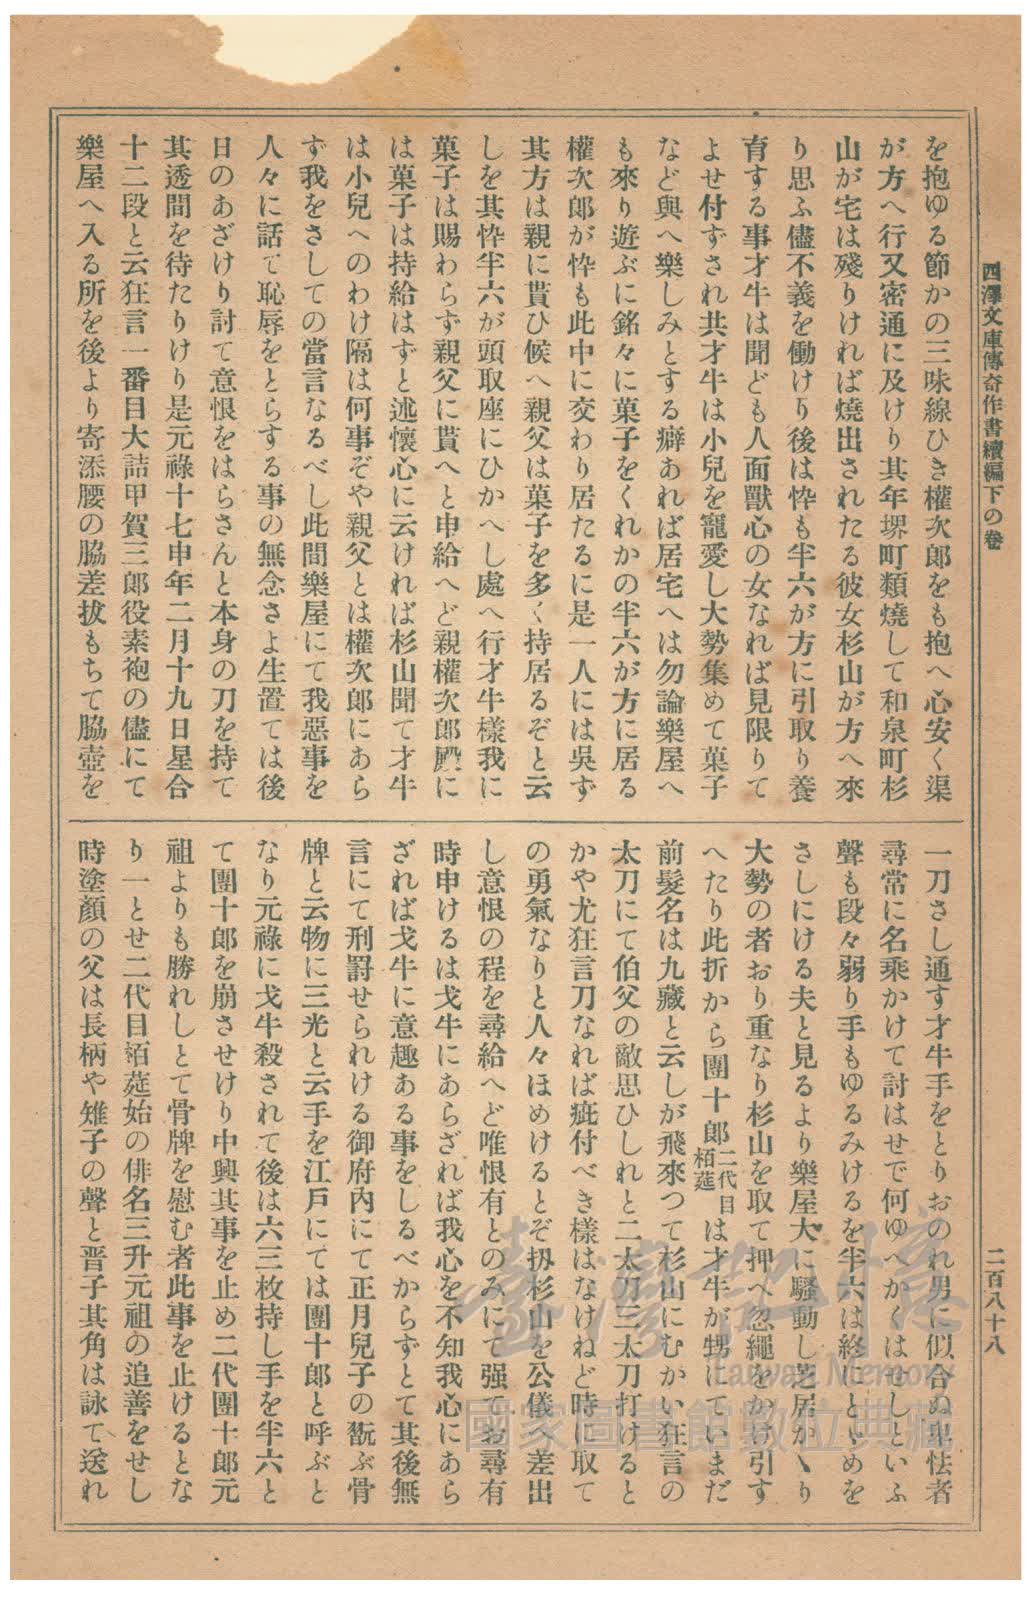 西澤文庫傳奇作書續編下の卷
二百八十八
を抱ゆる節かの三味線ひき權次郎をも抱へ心安く渠
が方へ行又密通に及けり其年堺町類燒して和泉町杉
山が宅は殘りければ燒出されたる彼女杉山が方へ來
り思ふ儘不義を働けり後は忰も半六が方に引取り養
育する事才牛は聞ども人面獸心の女なれば見限りて
よせ付ずされ共才牛は小兒を寵愛し大勢集めて菓子
など與へ樂しみとする癖あれば居宅へは勿論樂屋へ
も來り遊ぶに銘々に菓子をくれかの半六が方に居る
權次郎が忰も此中に交わり居たるに是一人には吳ず
其方は親に貰ひ候へ親父は菓子を多く持居るぞと云
しを其忰半六が頭取座にひかへし處へ行才牛樣我に
菓子は賜わらず親父に貰へと申給へど親權次郎殿に
は菓子は持給はずと述懷心に云ければ杉山聞て才牛
は小兒へのわけ隔は何事ぞや親父とは權次郎にあら
ず我をさしての當言なるべし此間樂屋にて我惡事を
人々に話て恥辱をとらする事の無念さよ生置ては後
日のあざけり討て意恨をはらさんと本身の刀を持て
其透間を待たりけり是元祿十七申年二月十九日星合
十二段と云狂言一番目大詰甲賀三郎役素袍の儘にて
樂屋へ入る所を後より寄添腰の脇差拔もちて脇壺を
一刀さし通す才牛手をとりおのれ男に似合ぬ卑怯者
尋常に名乘かけて討はせで何ゆへかくはせしといふ
聲も段々弱り手もゆるみけるを半六は終にとゞめを
さしにける夫と見るより樂屋大に騷動し芝居かゝり
大勢の者おり重なり杉山を取て押へ忽繩をかけ引す
へたり此折から團十郎二代目栢莚は才牛が甥にていまだ
前髮名は九藏と云しが飛來つて杉山にむかい狂言の
太刀にて伯父の敵思ひしれと二太刀三太刀打けると
かや尤狂言刀なれば疵付べき樣はなけねど時に取て
の勇氣なりと人々ほめけるとぞ扨杉山を公儀へ差出
し意恨の程を尋給へど唯恨有とのみにて强てお尋有
時申けるは戈牛にあらざれば我心を不知我心にあら
ざれば戈牛に意趣ある事をしるべからずとて其後無
言にて刑罰せられける御府內にて正月兒子の翫ぶ骨
牌と云物に三光と云手を江戶にては團十郎と呼ぶと
なり元祿に戈牛殺されて後は六三枚持し手を半六と
て團十郎を崩させけり中興其事を止め二代團十郎元
祖よりも勝れしとて骨牌を慰む者此事を止けるとな
り一とせ二代目栢莚始の俳名三升元祖の追善をせし
時塗顏の父は長柄や雉子の聲と晋子其角は詠て送れ
臺灣記憶
Taiwan Memory
國家圖書館數位典藏